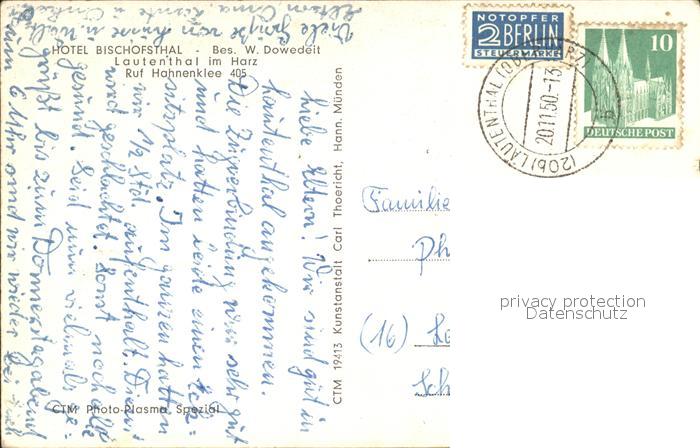 HOTEL BISCHOFSTHAL - Bes. W. Dowedeit
Lautenthal im Harz
Ruf Hahnenklee 405
Liebe Eltern! Wir sind gut in
Lautenthal angekommen.
Die Zugverbindung war sehr gut
und hatten beide einen Eck=
sitzplatz. Im ganzen hatten
wir 1/2 Std. Aufenthalt.
wird geschlachtet. Sonst noch alle
gesund. Seid nun vielmals ge=
grüßt bis zum Donnerstagabend
6 Uhr sind wir wieder bei Euch
Viele Grüße von
CTM Photo-Plasma Spezial
CTM 19413 Kunstanstalt Carl Thoericht, Hann. Münden
NOTOPFER
2 BERLIN
STEUERMARKE
10
DEUTSCHE POST
(20b) LAUTENTHAL (OBERHARZ)
20.11.50.-13
Familie
Ph
(16)
Sch
privacy protection
Datenschutz